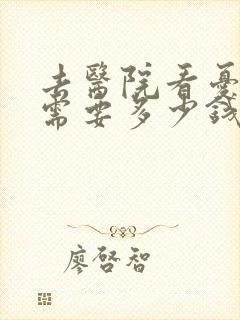 去醫院看憂
需要多少錢
廖啓智